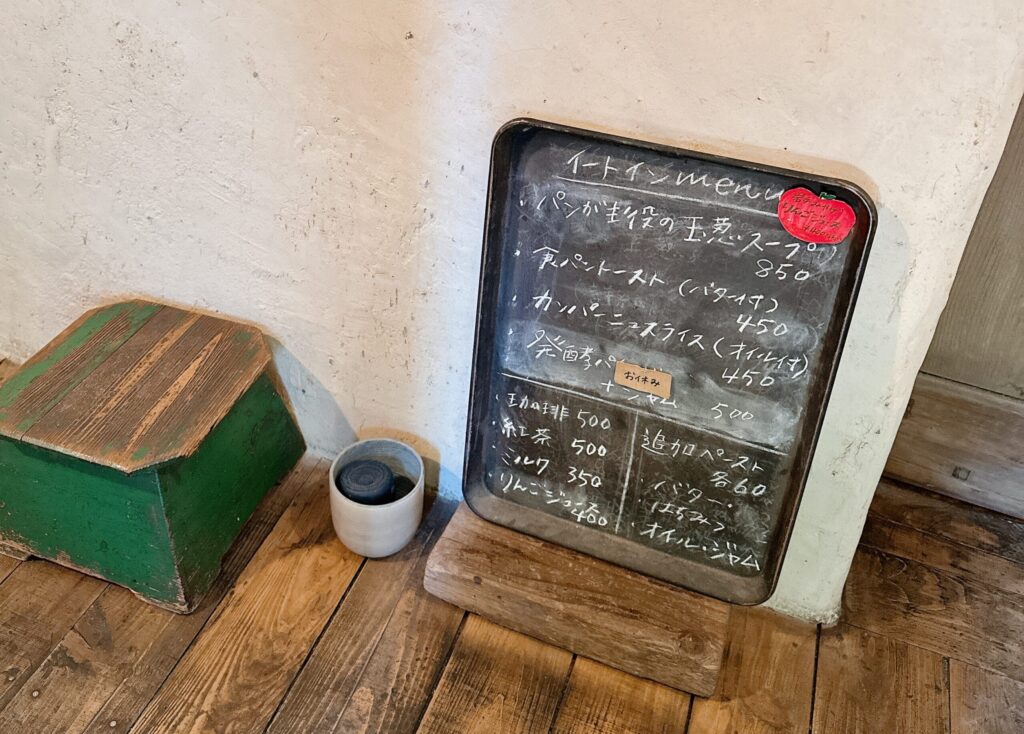 イートイン menu
・パンが主役の玉葱スープ
850
・食パントースト(バター付)
450
・カンパーニュスライス(オイル付)
450
・発酵パ
お休み
ジャム 500
・珈琲 500
・紅茶 500
・ミルク 350
・りんごジュース
400
追加ペースト
各60
・バター・
はちみつ
・オイル・ジャム